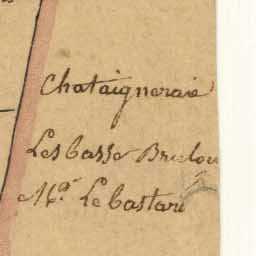 Chataigneraie
Les basse
Md. Le bastard